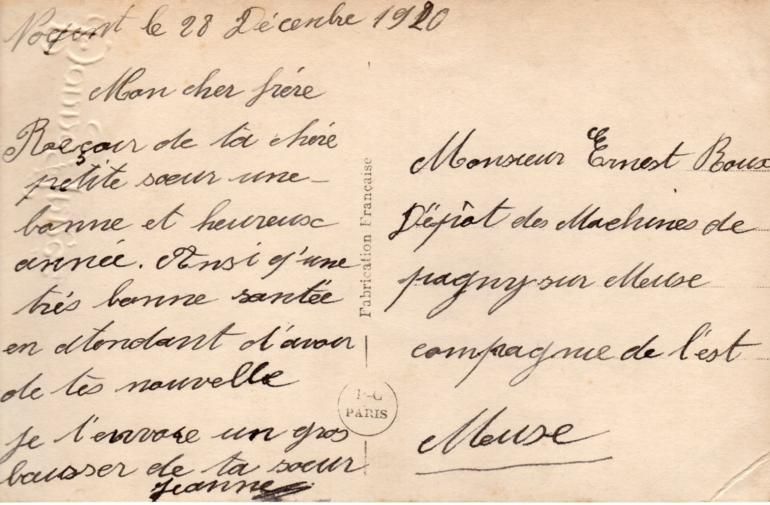 Nogent le 28 Décenbre 1920
Mon cher frére
Roeçoir de ta chére
petite sœur une
bonne et heureuse
année. Ansi q'une
trés bonne santée
en atendant d'avoir
de tes nouvelle
je t'envoie un gros
bausser de ta soeur
jeanne
Fabrication Française
PARIS
Monsieur Ernest Roux
Dépôt des Machines de
pagny-sur Meuse
compagnie de l'est
Meuse